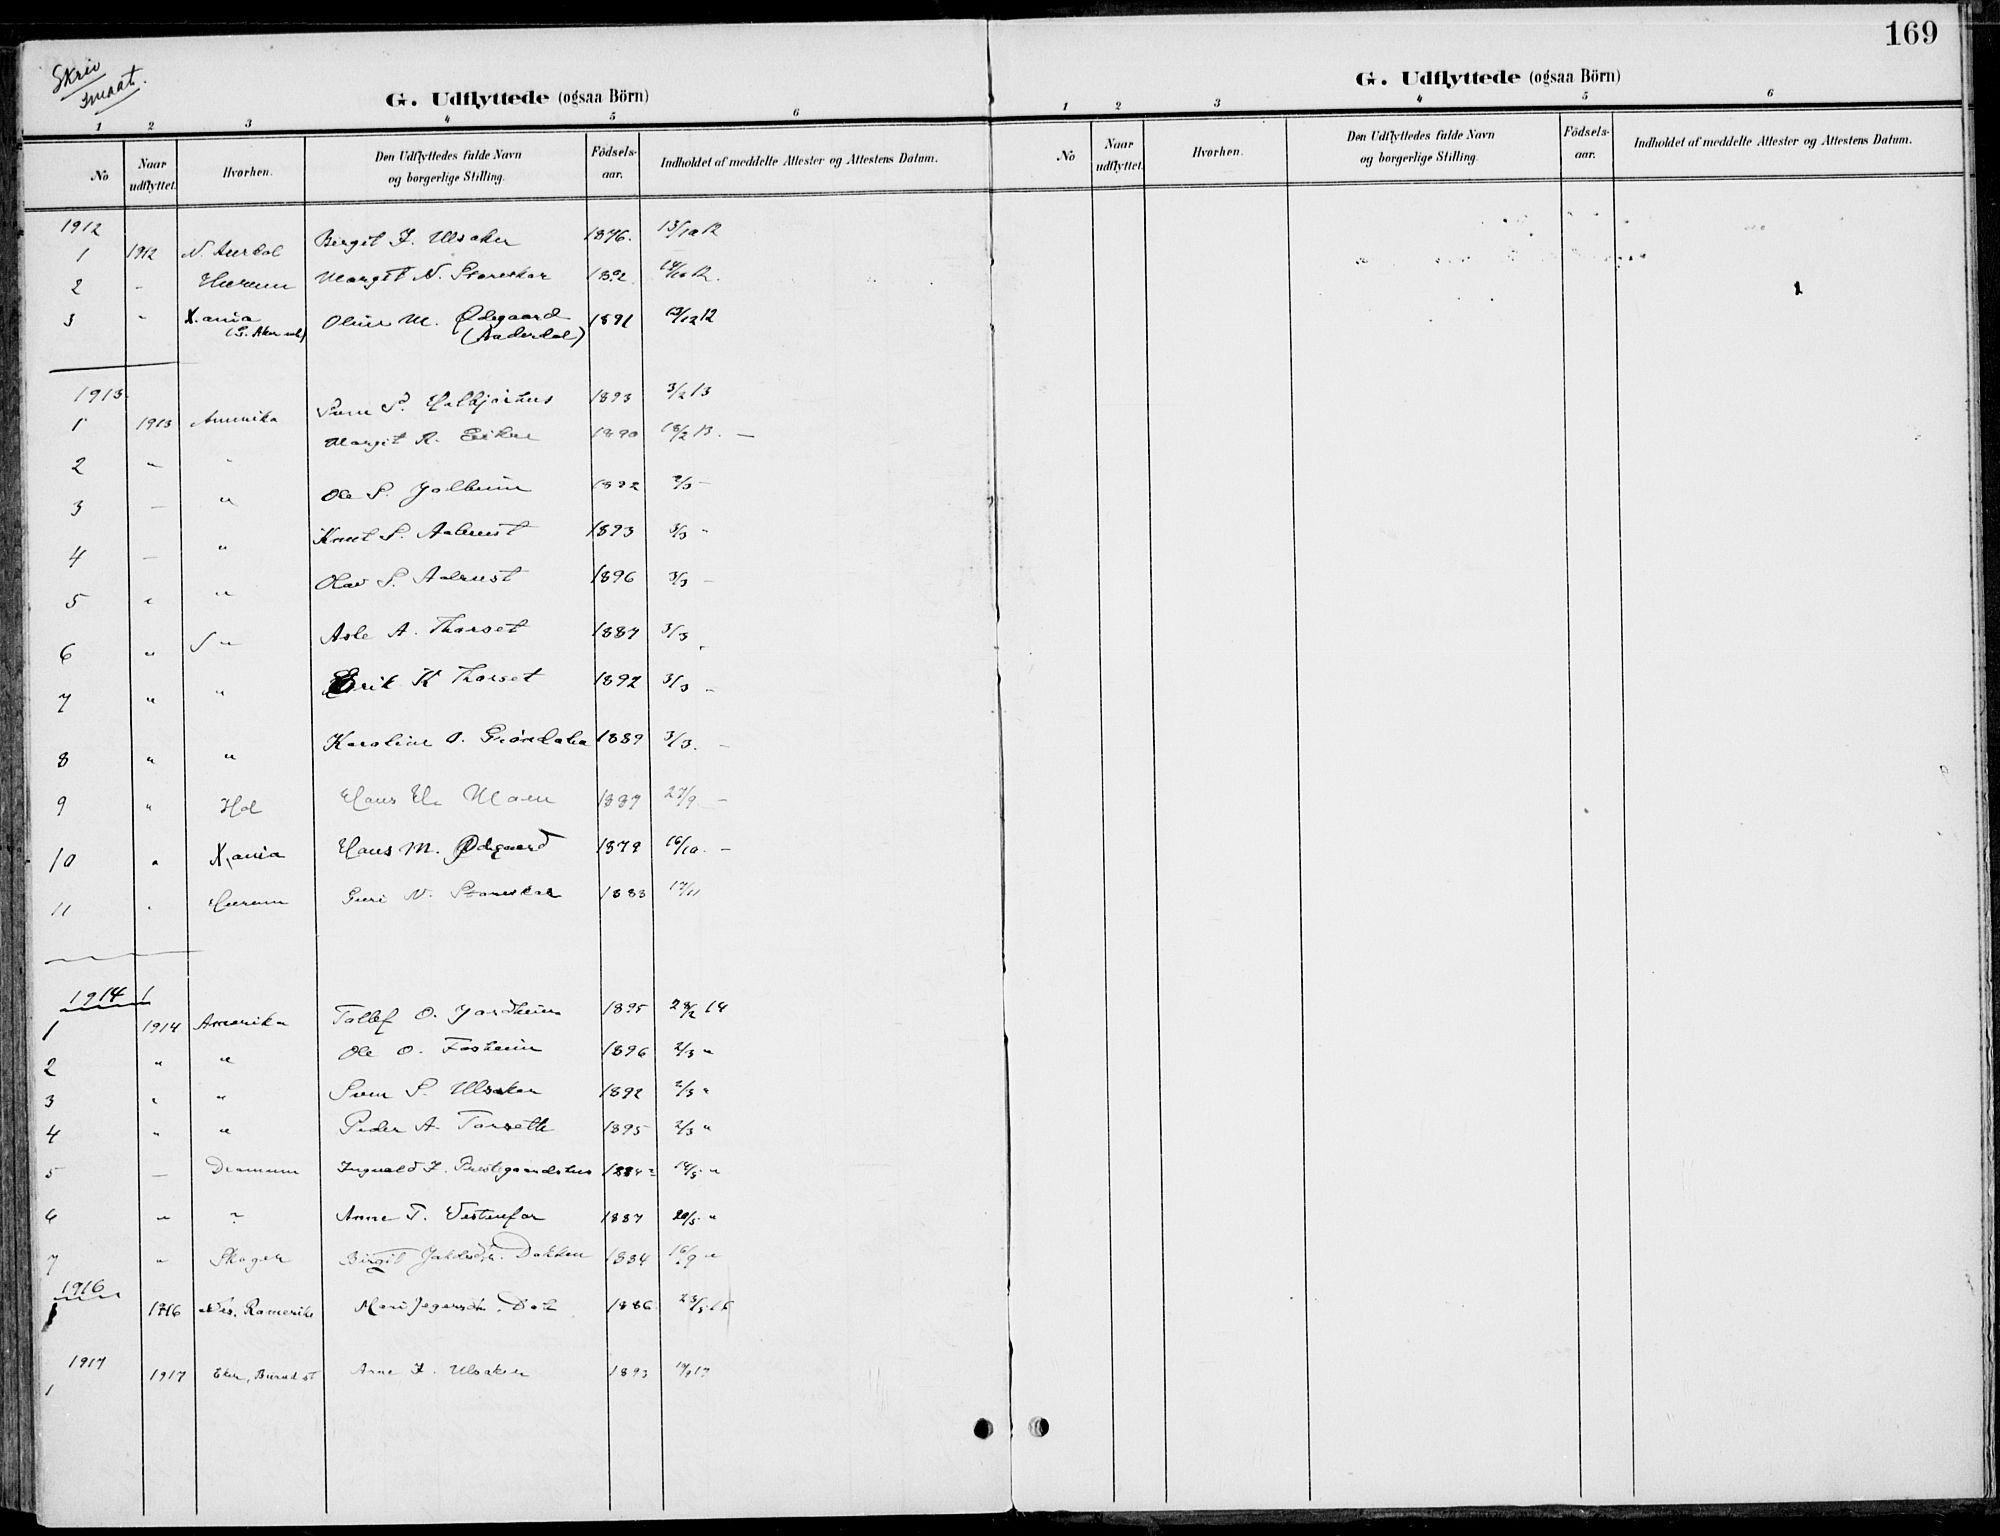 169
Skriv smaat.
G. Udflyttede (ogsaa Börn)
1 2 3 4 5 6
No
Naar udflyttet.
Hvorhen.
Den Udflyttedes fulde Navn og borgerlige Stilling.
Födsels-aar.
Indholdet af meddelte Attester og Attestens Datum.
1912
1 1912 N. Aurdal Birgit Ulsaker 1876. 13/10 12
2 - Hurum Margit N. Storeskar 1892. 12.
3 " X.ania Oline M. Ødegaard 1891 12/12 12
1913.
1 1913 Amerika 1893 3/2 13
2 " " Margit R. Eikre 1890 18/2 13. -
3 - " Ole S. 1892 -
4 - " Knut S. Aalrust 1893 3/3 "
5 " " Olav S. Aalrust 1896 3/3 -
6 " " Asle A. Thorset 1887 3/3
7 " " Erik K Thorset 1892 3/3 -
8 " " Karoline O. Grøndalen 1889 3/3. -
9 " Hol Hans 1887 27/9 -
10 " X.ania Hans M. Ødegaard 1879 16/10. -
11 " Hurum Guri N. Storeskar 1883 17/11
1914
1 1914 Amerika Tollef O. Jordheim 1895 28/2 14
2 " " Ole O. Fosheim 1896 2/3 "
3 " " Sven S. Ulsaker 1892 2/3 "
4 " " Peder A. Torseth 1895 2/3 "
5 - Drammen Ingvald Prestegaardshus 1884 "
6 " " Anne T. Vestenfor 1887 20/5 "
7 " Skoger Birgit Dokken 1884 16/9 "
1916
1 1916 Nes, Romerike Mari 1886 23/5 16
1917
1 1917 Eker, Arne Ulsaker 1893 17
G. Udflyttede (ogsaa Börn)
1 2 3 4 5 6
No
Naar udflyttet.
Hvorhen.
Den Udflyttedes fulde Navn og borgerlige Stilling.
Födsels-aar.
Indholdet af meddelte Attester og Attestens Datum.